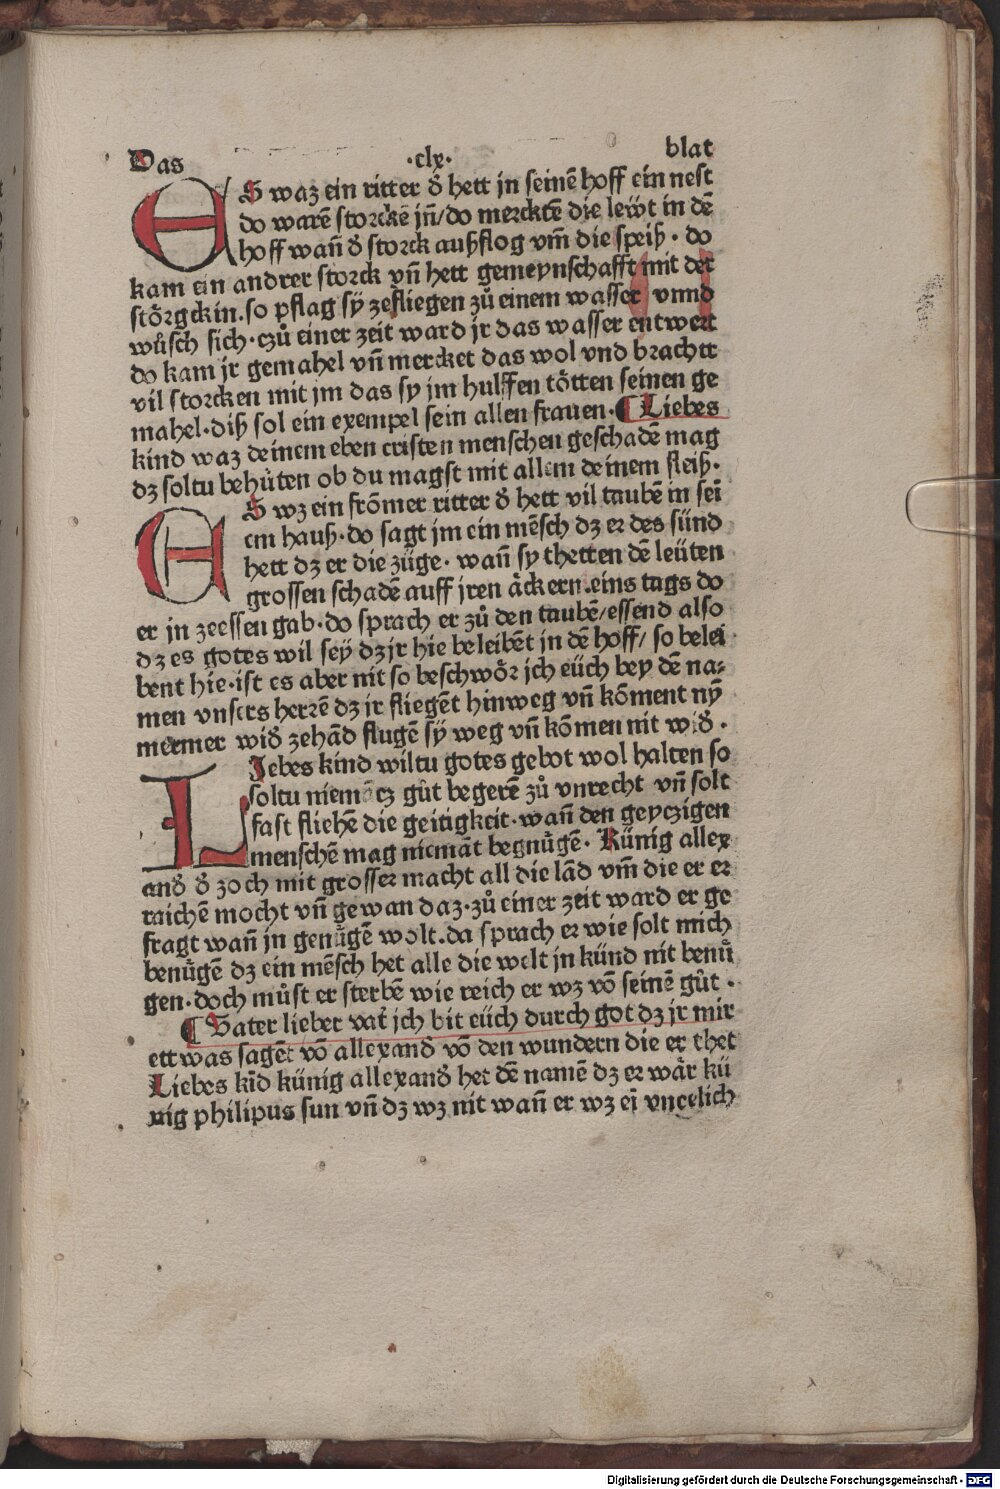 Das ·clx· blat
ES waz ein ritter d̕ hett jn seinē hoff ein nest
do warē storckē jn̄/do mercktē die lewt in dē
hoff wan̄ d̕ storck außflog vm̄ die speiß · do
kam ein andrer storck vn̄ hett gemeynschafft mit der
störgckin.so pflag sÿ zefliegen zů einem wasser vnnd
wůsch sich·czů einer zeit ward jr das wasser entwert
do kam jr gemahel vn̄ mercket das wol vnd brachtt
vil storcken mit jm das sy jm hulffen tötten seinen ge
mahel·diß sol ein exempel sein allen frauen·¶ Liebes
kind waz deinem eben cristen menschen geschadē mag
dz soltu behůten ob du magst mit allem deinem fleiß·
ES wz ein frōmer ritter d̕ hett vil taubē in sei
em hauß·do sagt jm ein mēsch dz er des sünd
hett dz er die züge· wan̄ sy thetten dē leüten
grossen schadē auff jren äckern.eins tags do
er jn zeessen gab·do sprach er zů den taubē/essend also
dz es gotes wil seÿ dz jr hie beleibēt jn dē hoff/ so belei
bent hie·ist es aber nit so beschwör jch eüch bey dē na-
men vnsers herrē dz jr fliegēt hinweg vn̄ kōment nȳ
mermer wid̕ zehād flugē sÿ weg vn̄ kōmen nit wid̕ ·
LIebes kind wiltu gotes gebot wol halten so
soltu niemācz gůt begerē zů vnrecht vn̄ solt
fast fliehē die geitigkeit·wan̄ den geyczigen
menschē mag niemāt begnůgē· Künig allex
and̕ d̕ zoch mit grosser macht all die lād vm̄ die er er
raichē mocht vn̄ gewan daz·zů einer zeit ward er ge
fragt wan̄ jn genůgē wolt.da sprach er wie solt mich
benůgē dz ein mēsch het alle die welt jn künd nit benů
gen·doch můst er sterbē wie reich er wz vō seinē gůt ·
¶ Vater lieber vat̕ jch bit eüch durch got dz jr mir
ettwas sagēt vō allexand̕ vō den wundern die er thet
Liebes kīd künig allexand̕ het dē namē dz er wär kü
nig philipus sun vn̄ dz wz nit wan̄ er wz eī vneelich
Digitalisierung gefördert durch die Deutsche Forschungsgemeinschaft - DFG